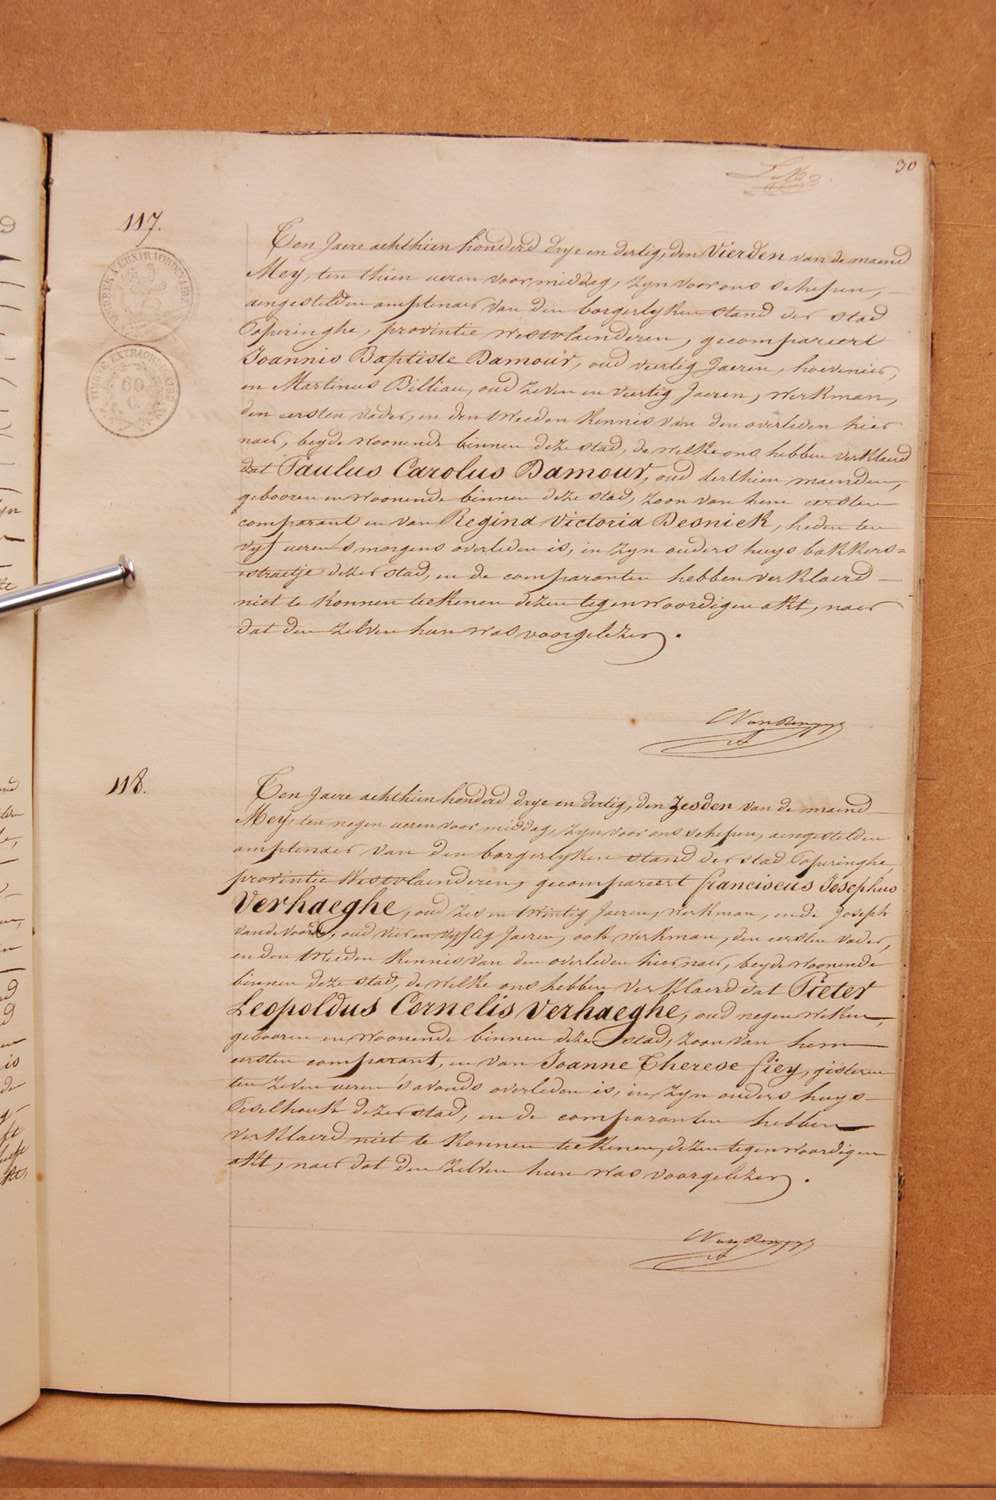 30
117.
Ten Jaere achthien honderd drye en dertig, den Vierden van de maend
Mey, ten thien ueren voormiddag, zyn voor ons schepen,
aengestelden amptenaer van den borgerlyken stand der stad
Poperinghe, provintie Westvlaenderen, gecompareert
Joannis Baptiste Damour, oud veertig Jaeren, hovenier,
en Martinus Billiau, oud zeven en veertig Jaeren, werkman,
den eersten vader, en den tweeden kennis van den overleden hier
naer, beyde woonende binnen deze stad, de welke ons hebben verklaerd
dat Paulus Carolus Damour, oud derthien maenden,
gebooren en woonende binnen deze stad, zoon van hem eersten
comparant en van Regina Victoria Desnick, heden ten
vyf ueren 's morgens overleden is, in zyn ouders huys bakkers=
straetje dezer stad, en de comparanten hebben verklaerd
niet te konnen teekenen dezen tegenwoordigen akt, naer
dat den zelven hun was voorgelezen.
118.
Ten Jaere achthien honderd drye en dertig, den Zesden van de maend
Mey, ten negen ueren voormiddag, zyn voor ons schepen, aengestelden
amptenaer van den borgerlyken stand der stad Poperinghe,
provintie Westvlaenderen, gecompareert franciscus Josephus
Verhaeghe, oud zes en twintig Jaeren, werkman, en de Joseph
vande voorde, oud vier en vyftig Jaeren, ook werkman, den eersten vader,
en den tweeden kennis van den overleden hier naer, beyde woonende
binnen deze stad, de welke ons hebben verklaerd dat Pieter
Leopoldus Cornelis Verhaeghe, oud negen weken,
gebooren en woonende binnen dezer stad, zoon van hem
eersten comparant, en van Joanne Therese fiey, gisteren
ten zeven ueren 's avonds overleden is, in zyn ouders huys
dezer stad, en de comparanten hebben
verklaerd niet te konnen teekenen, dezen tegenwoordigen
akt, naer dat den zelven hun was voorgelezen.